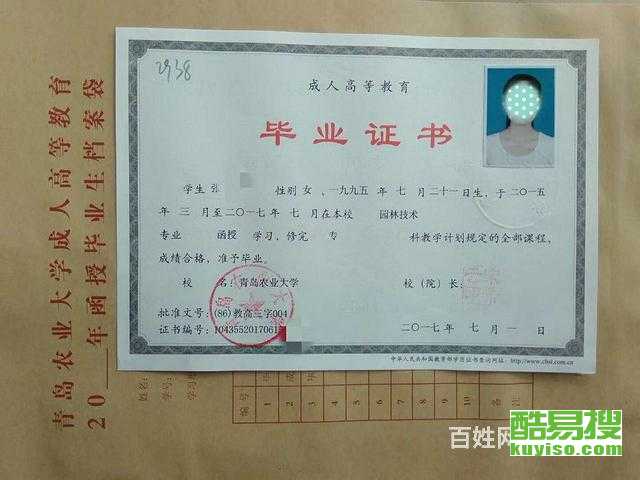 2938
成人高等教育
毕业证书
学生 张 性别 女 , 一九九五 年 七 月 二十一 日生, 于 二〇一五
年 三 月至 二〇一七 年 七 月在本校 园林技术
专业 函授 学习, 修完 专 科教学计划规定的全部课程,
成绩合格, 准予毕业。
校 名: 青岛农业大学 校（院）长:
批准文号: (86)教高三字004
证书编号: 1043552017061
二〇一七 年 七 月 一 日
中华人民共和国教育部学历证书查询网址: http://www.chsi.com.cn
青岛农业大学成人高等教育
20 年函授毕业生档案袋
姓名:
学号:
编号 1 2 3 4 5 6 7 8 9 10 备注
百姓网
酷易搜
kuyiso.com